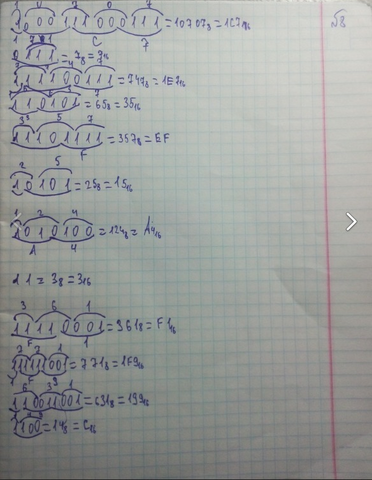 №8
1 0 0 7 0 7
1 000 111 000 111 = 10707₈ = 127₁₆
1 C 7
0111 = 7₈ = 7₁₆
111100111 = 747₈ = 1E7₁₆
110101 = 65₈ = 35₁₆
3 5 7
11101111 = 357₈ = EF
F
2 5
10101 = 25₈ = 15₁₆
1 2 4
1010100 = 124₈ = A4₁₆
A 4
11 = 3₈ = 3₁₆
3 6 1
11110001 = 361₈ = F1₁₆
F 1
111111001 = 771₈ = 1F9₁₆
110011001 = 631₈ = 199₁₆
1100 = 14₈ = C₁₆